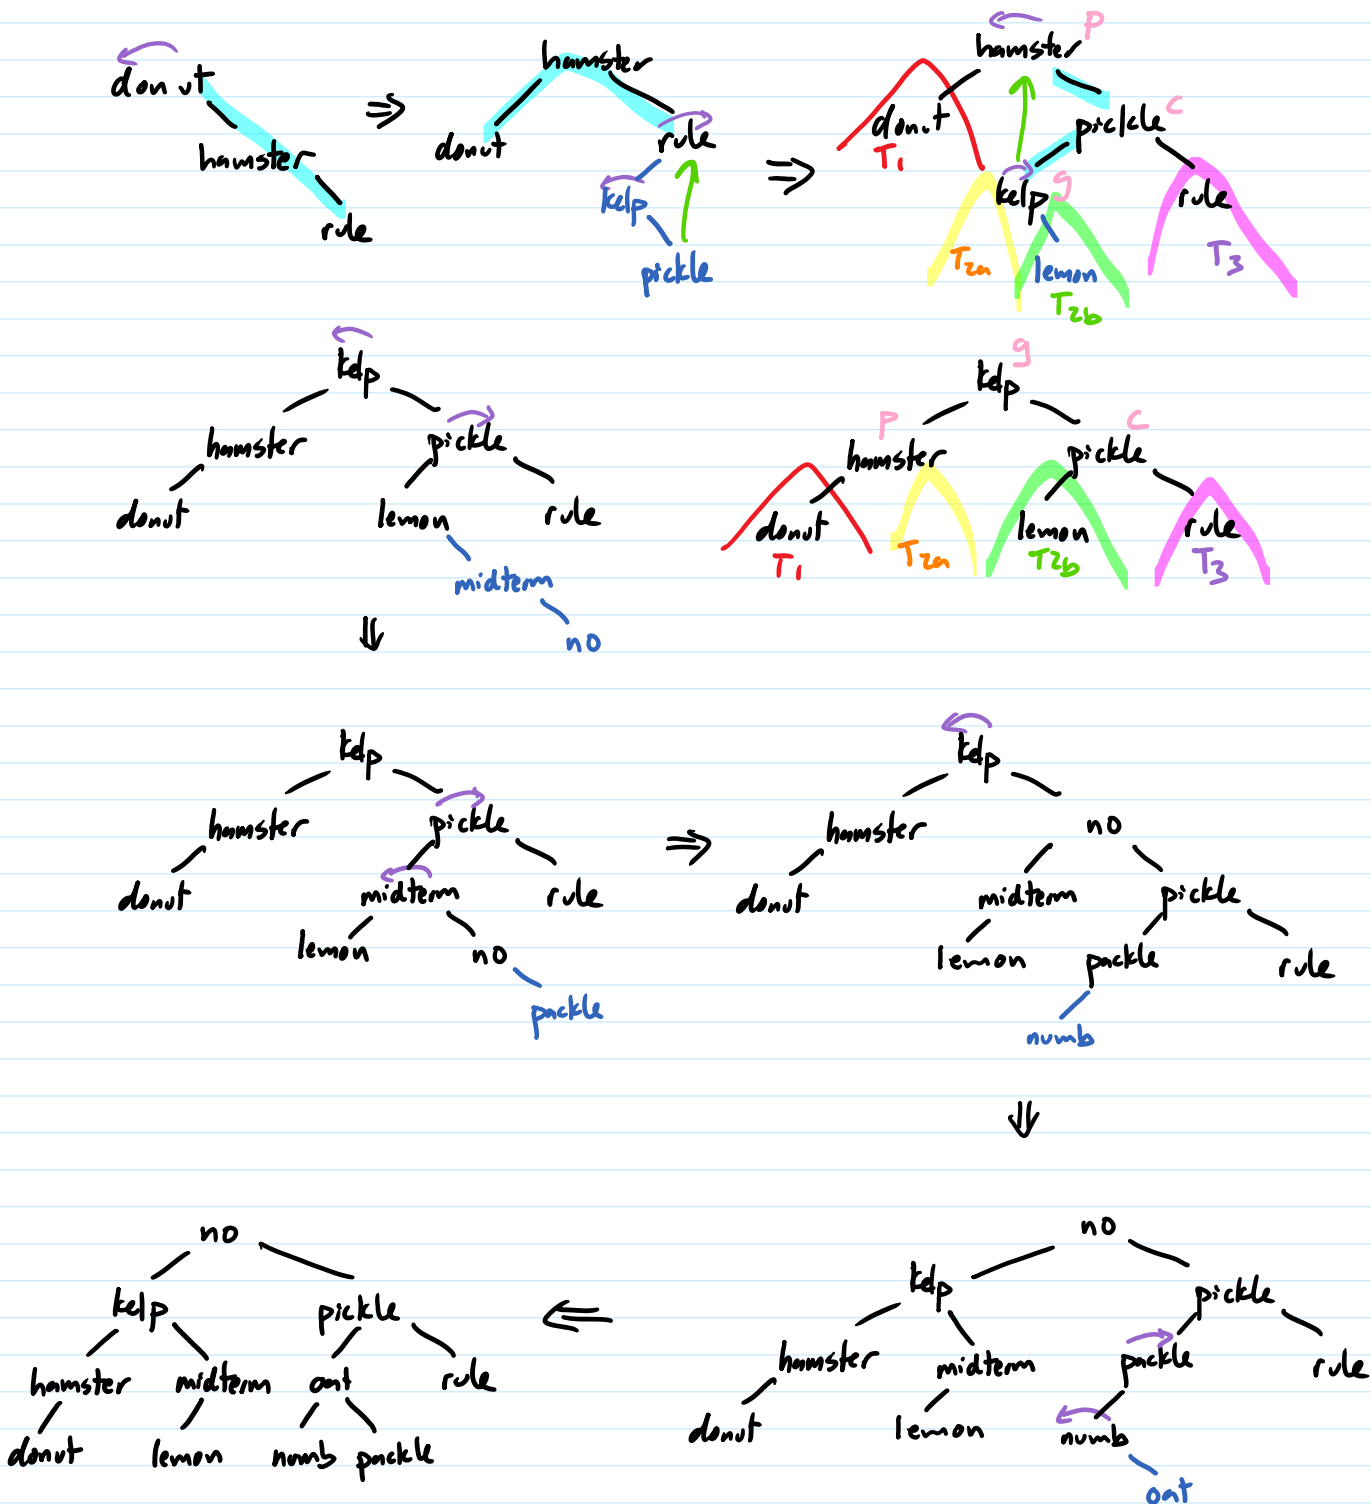 donut
hamster
rule
hamster
donut
rule
kelp
pickle
hamster p
donut
pickle c
T1
kelp g
rule
T2a
lemon
T3
T2b
kelp
hamster
pickle
donut
lemon
rule
midterm
no
kelp g
p hamster
pickle c
donut
lemon
rule
T1
T2a
T2b
T3
kelp
hamster
pickle
donut
midterm
rule
lemon
no
packle
kelp
hamster
no
donut
midterm
pickle
lemon
packle
rule
numb
no
kelp
pickle
hamster
midterm
oat
rule
donut
lemon
numb
packle
no
kelp
pickle
hamster
midterm
packle
rule
donut
lemon
numb
oat